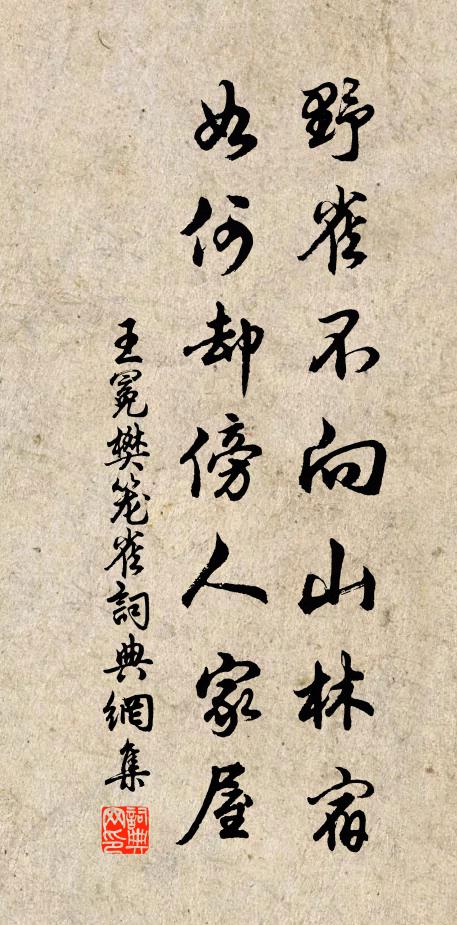 野雀不向山林宿
如何却傍人家屋
王冕樊笼雀詞典網集
詞典网印